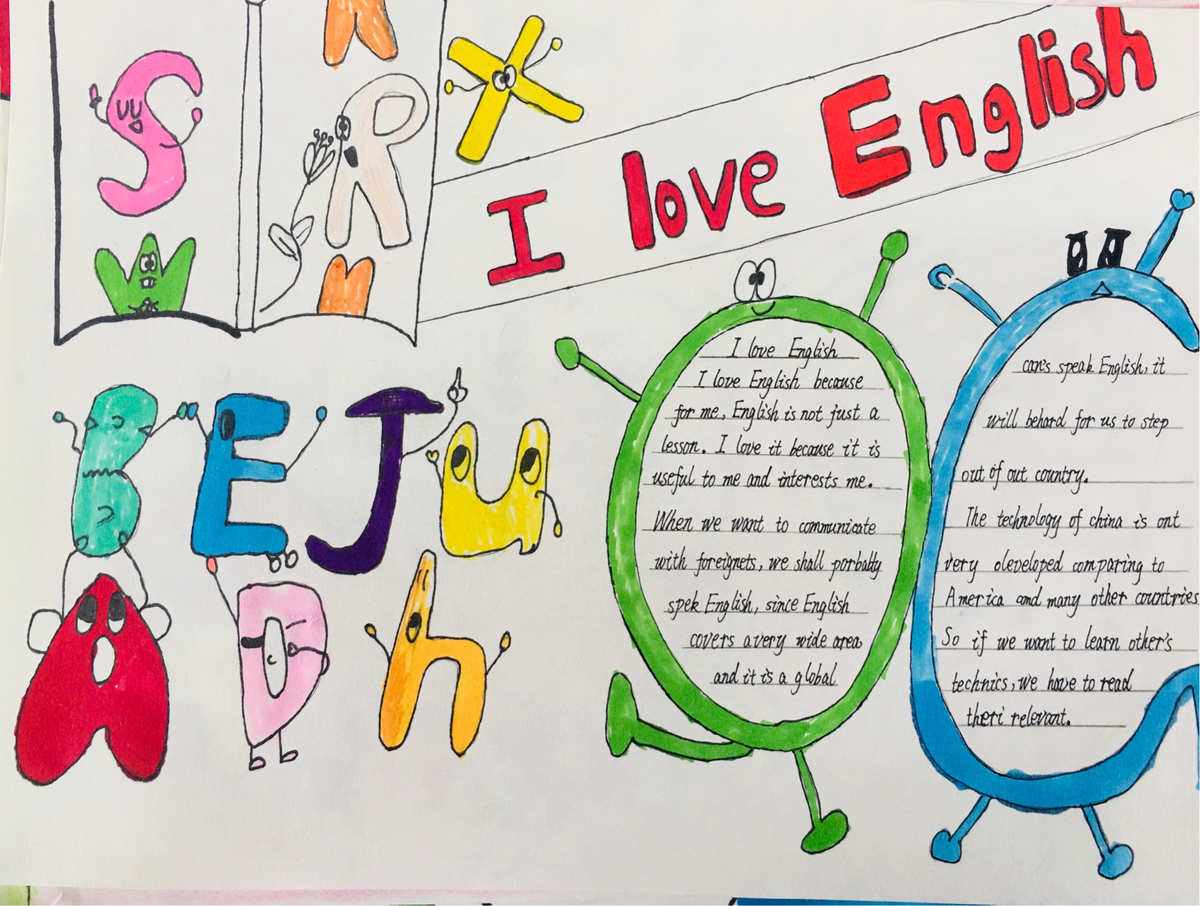 I love English
S
R
X
W
B E J u
A D h
I love English
I love English because
for me, English is not just a
lesson. I love it because it is
useful to me and interests me.
When we want to communicate
with foreignets, we shall porbably
spek English, since English
covers a very wide area
and it is a global
can's speak English, it
will behard for us to step
out of out country.
The technology of china is ont
very oleveloped comparing to
America and many other countries
So if we want to learn other's
technics, we have to read
theri relevant.